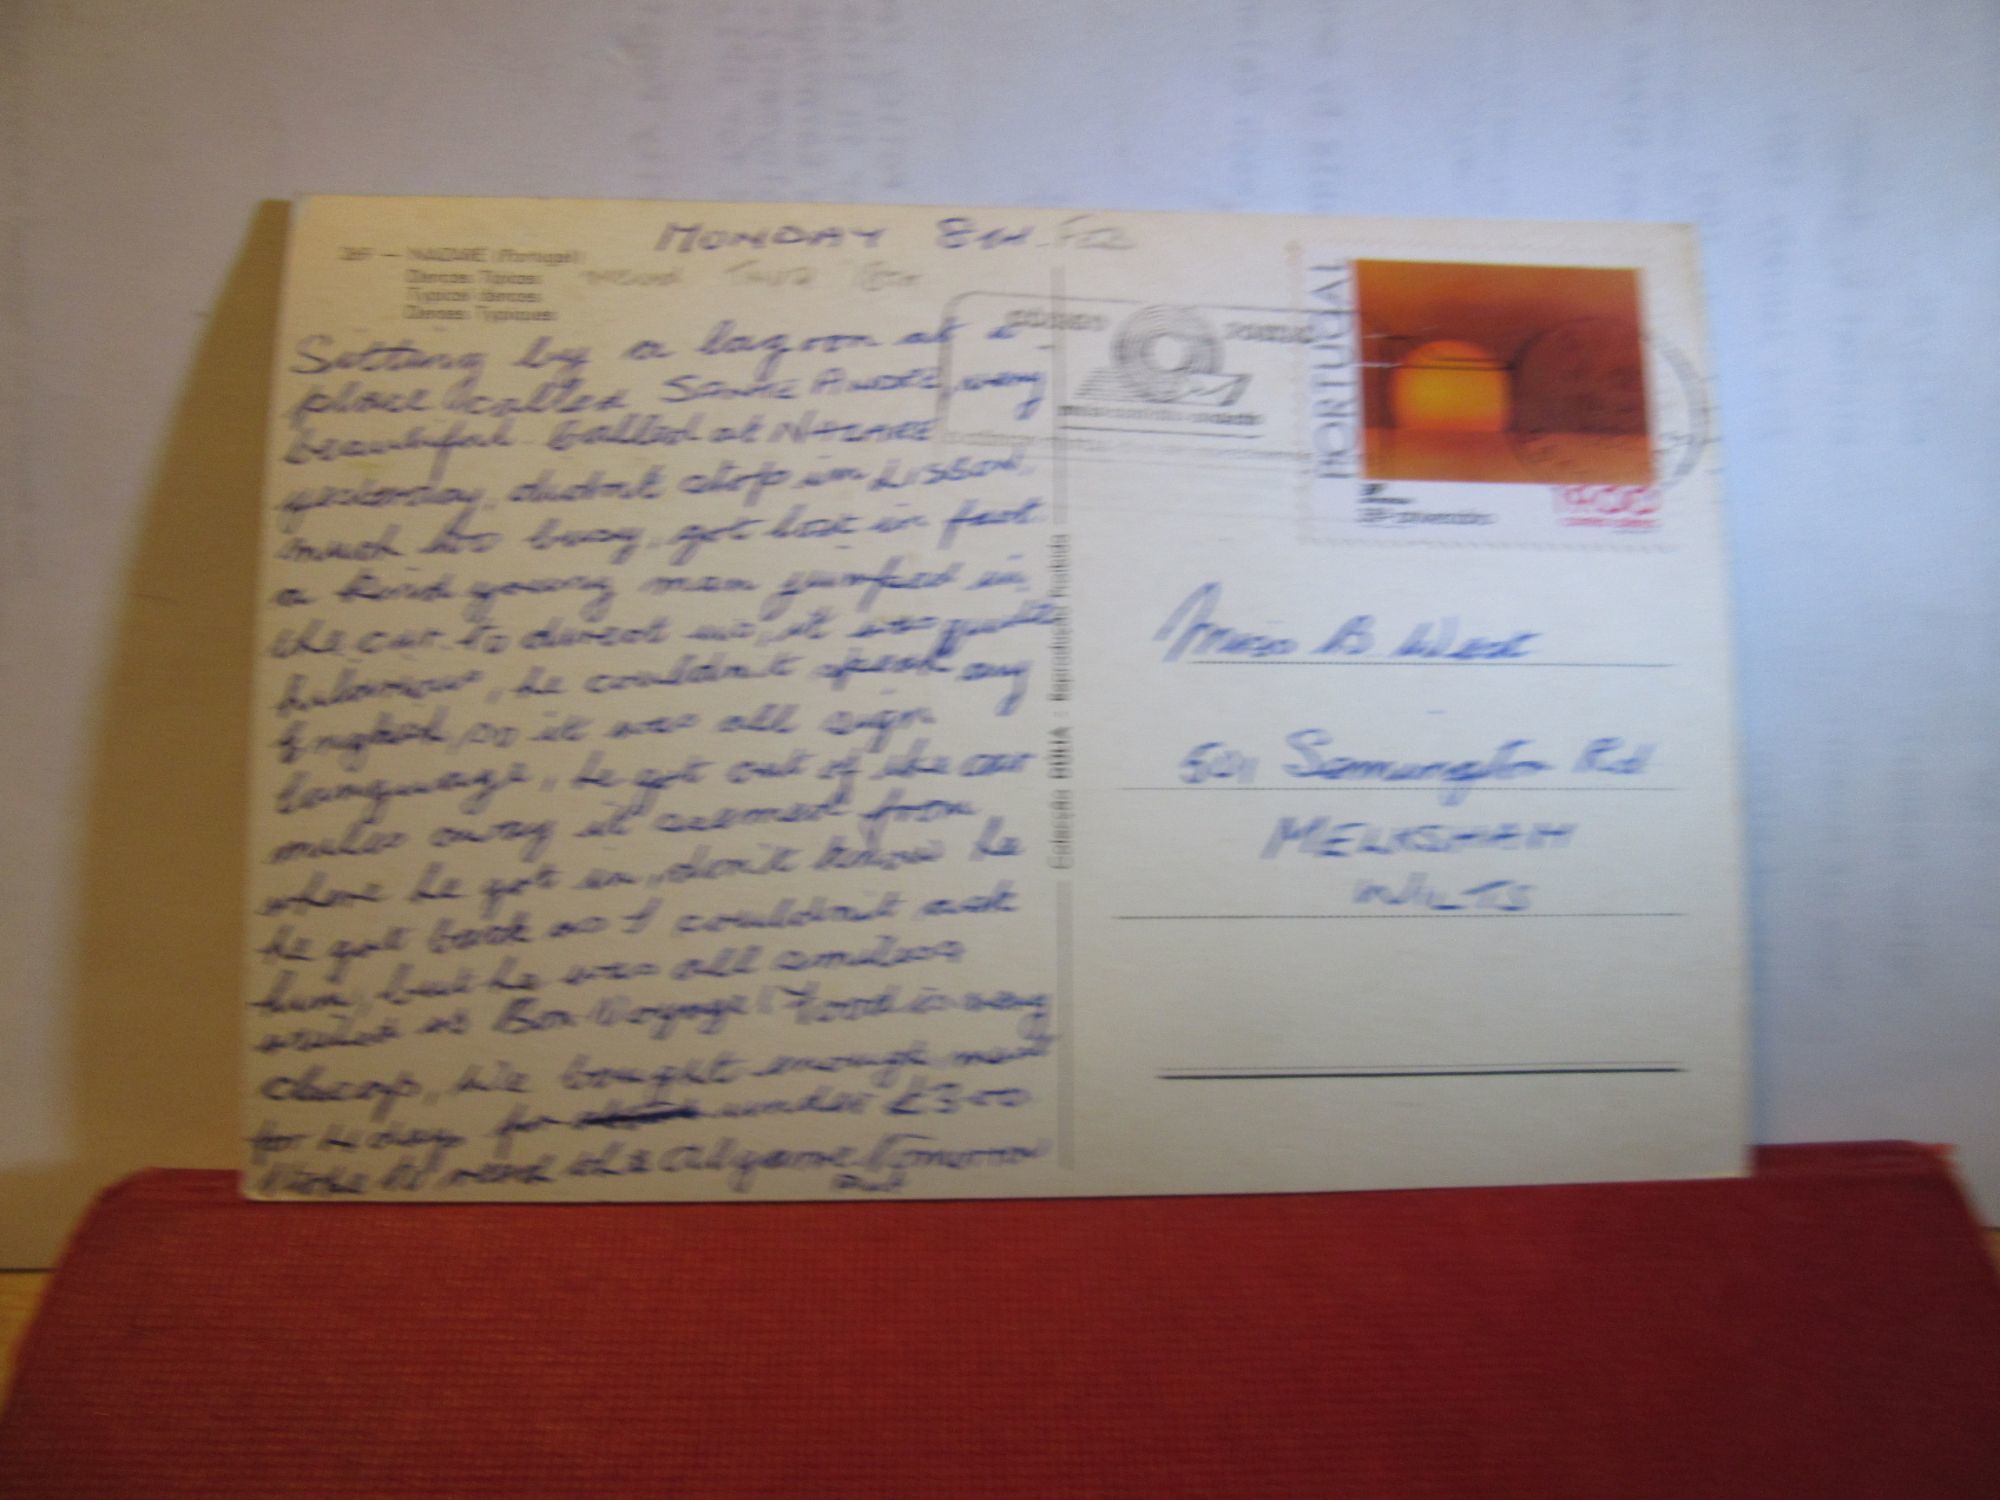 MONDAY 8TH FEB
NAZARÉ (Portugal)
Danças Típicas
Typical dances
Danses Typiques
Sitting by a lagoon at a
place called SANTE ANDRE, very
beautiful. Called at NAZARE
yesterday, didn't stop in LISBON,
much too busy, got lost in fact
a kind young man jumped in
the car to direct us, it was quite
hilarious, he couldn't speak any
English, so it was all sign
language, he got out of the car
miles away it seemed from
where he got in, don't know he
he got back as I couldn't ask
him, but he was all smiles &
wished us Bon Voyage! Food is very
cheap, I've bought enough meat
for days for under £3-00
to reach the Algarve Tomorrow
PORTUGAL
Colecção DÚLIA : Reprodução Proibida
Miss B West
Semington Rd
MELKSHAM
WILTS